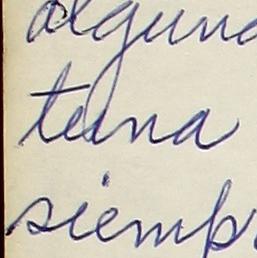 alguna
tuna
siemp